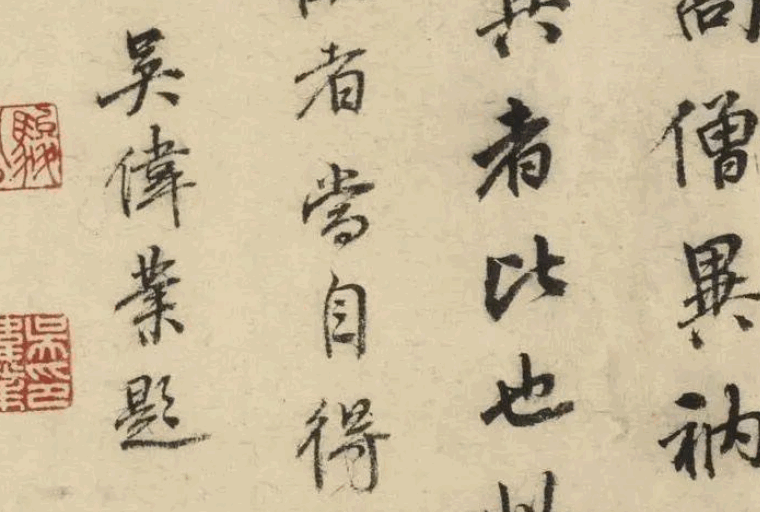 僧異衲
者比也
者當自得
吳偉業題